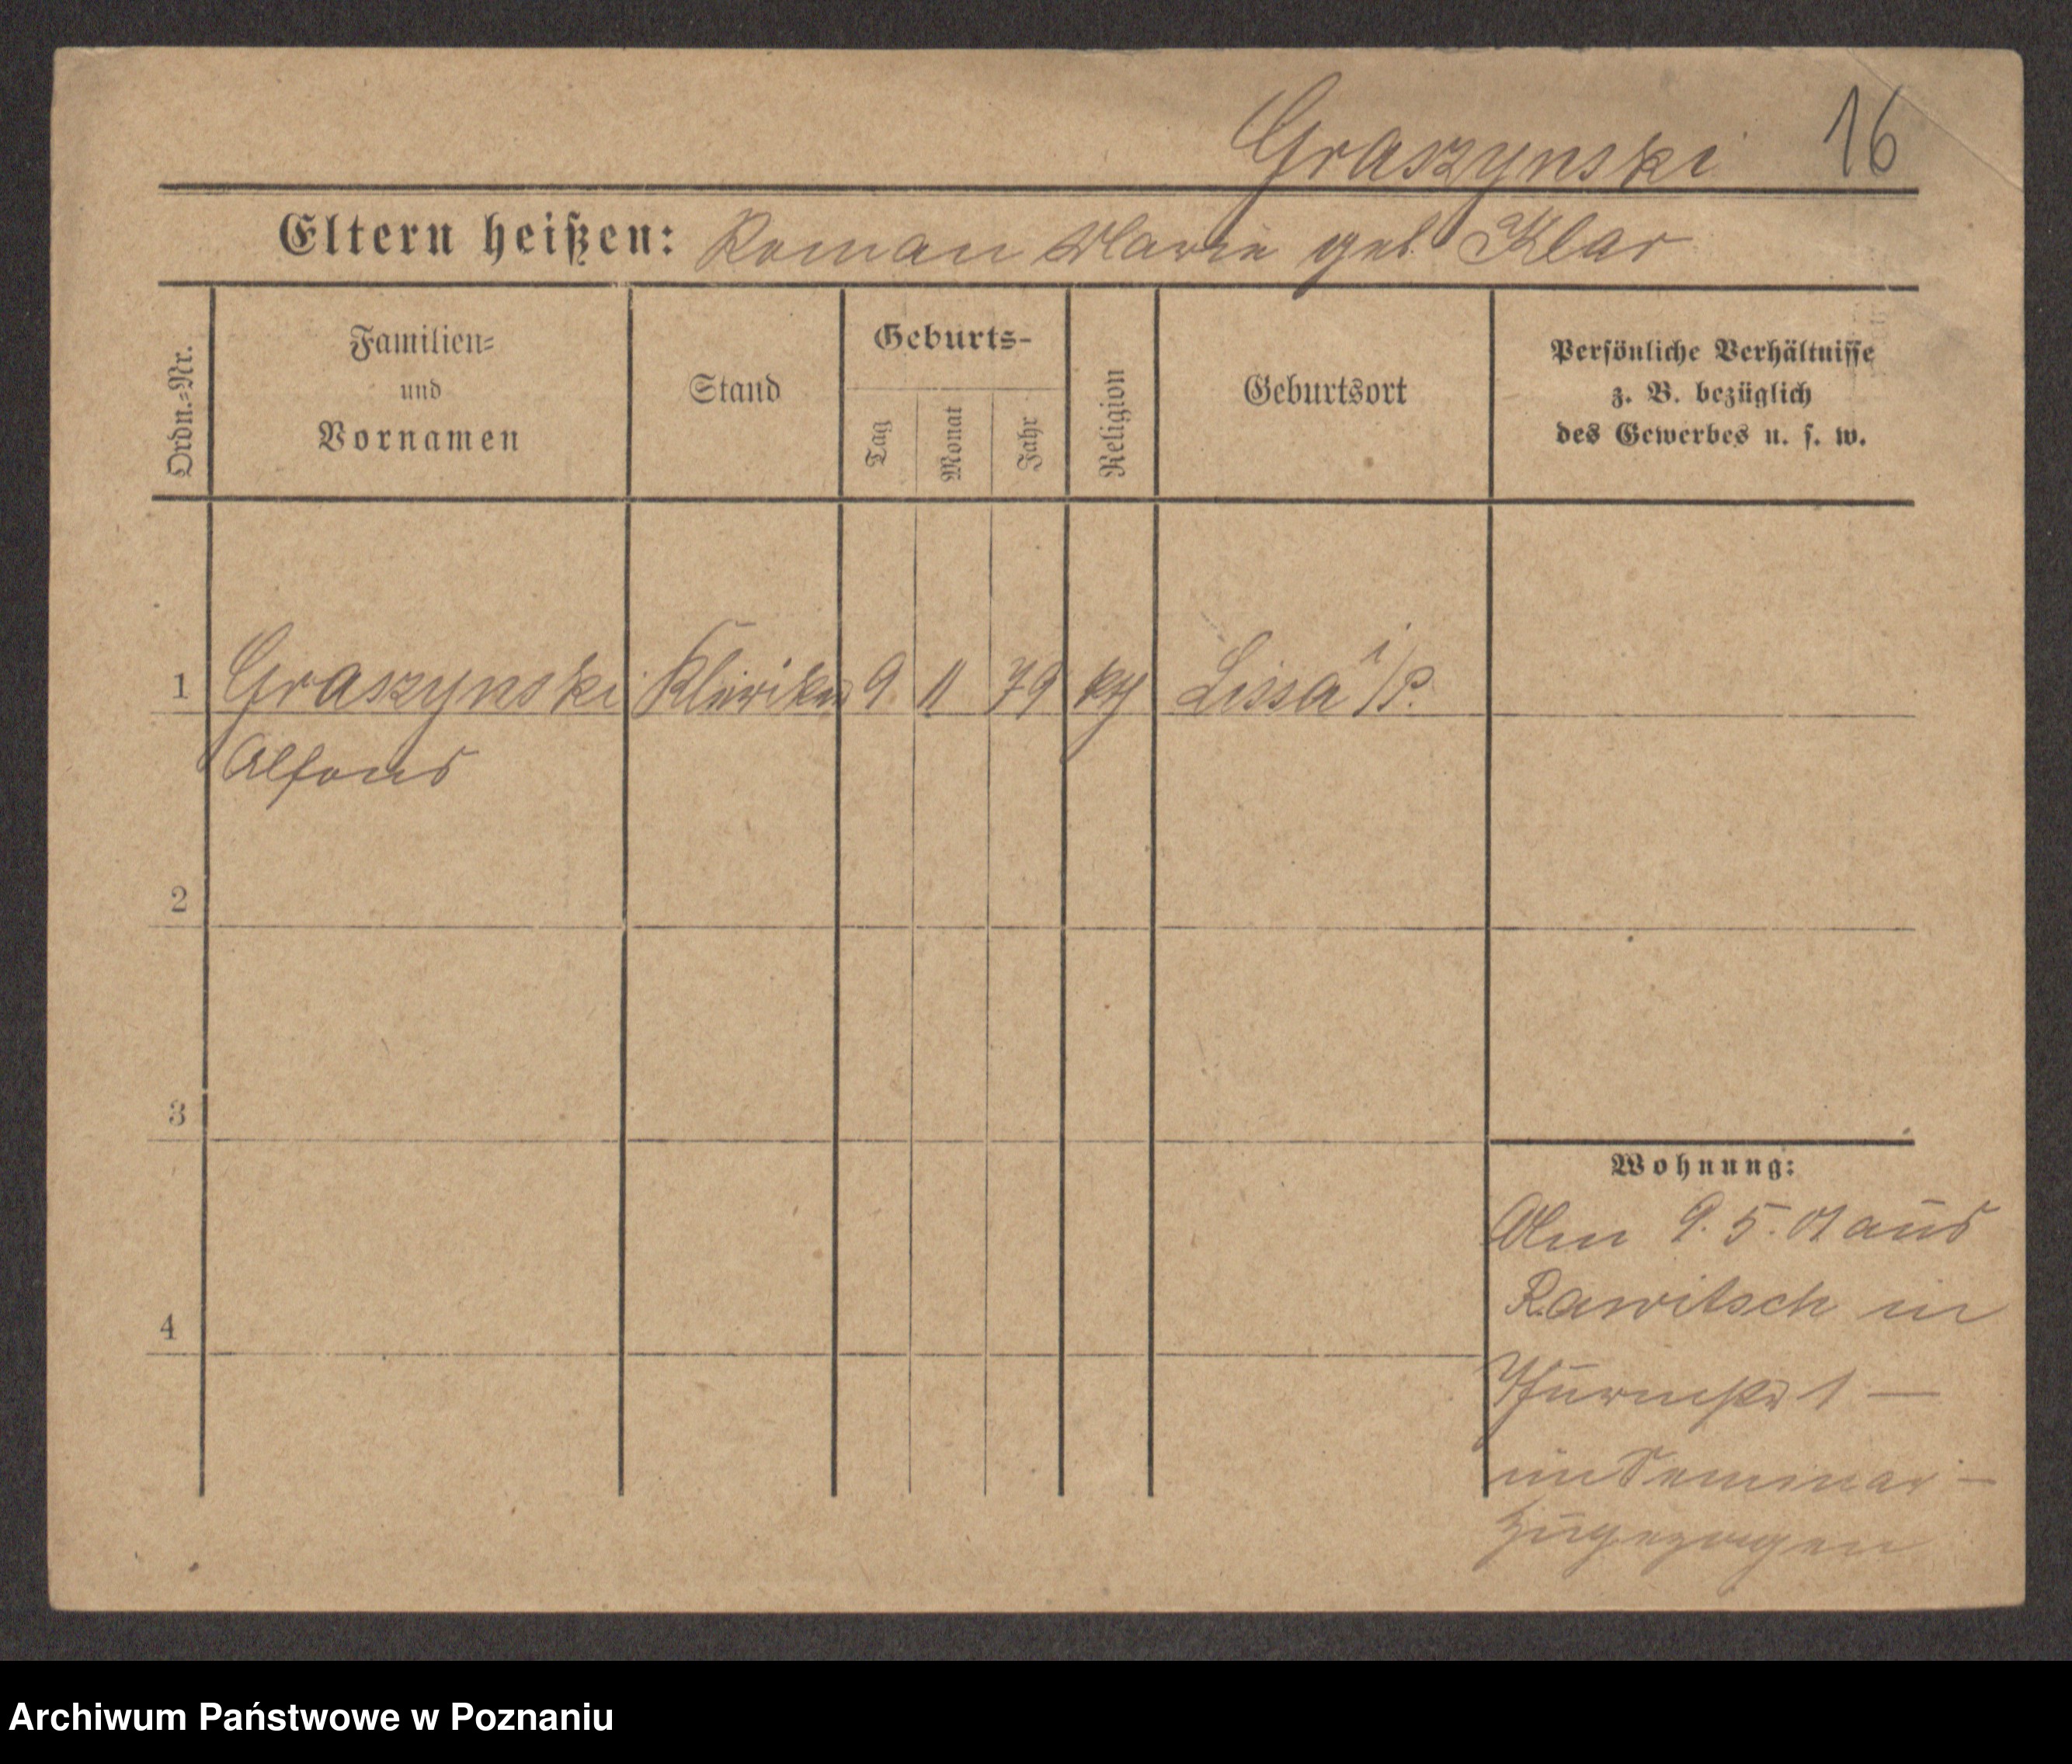 Graszynski 16
Eltern heißen: Roman Marie geb. Klar
Ordn.-Nr.
Familien-
und
Vornamen
Stand
Geburts-
Tag
Monat
Jahr
Religion
Geburtsort
Persönliche Verhältnisse
z. B. bezüglich
des Gewerbes u. s. w.
1 Graszynski Kleriker 9 11 79 kth Lissa i/P.
Alfons
2
3
4
Wohnung:
Am 9.5.01 aus
Rawitsch in
1 —
im Seminar —
zugezogen
Archiwum Państwowe w Poznaniu